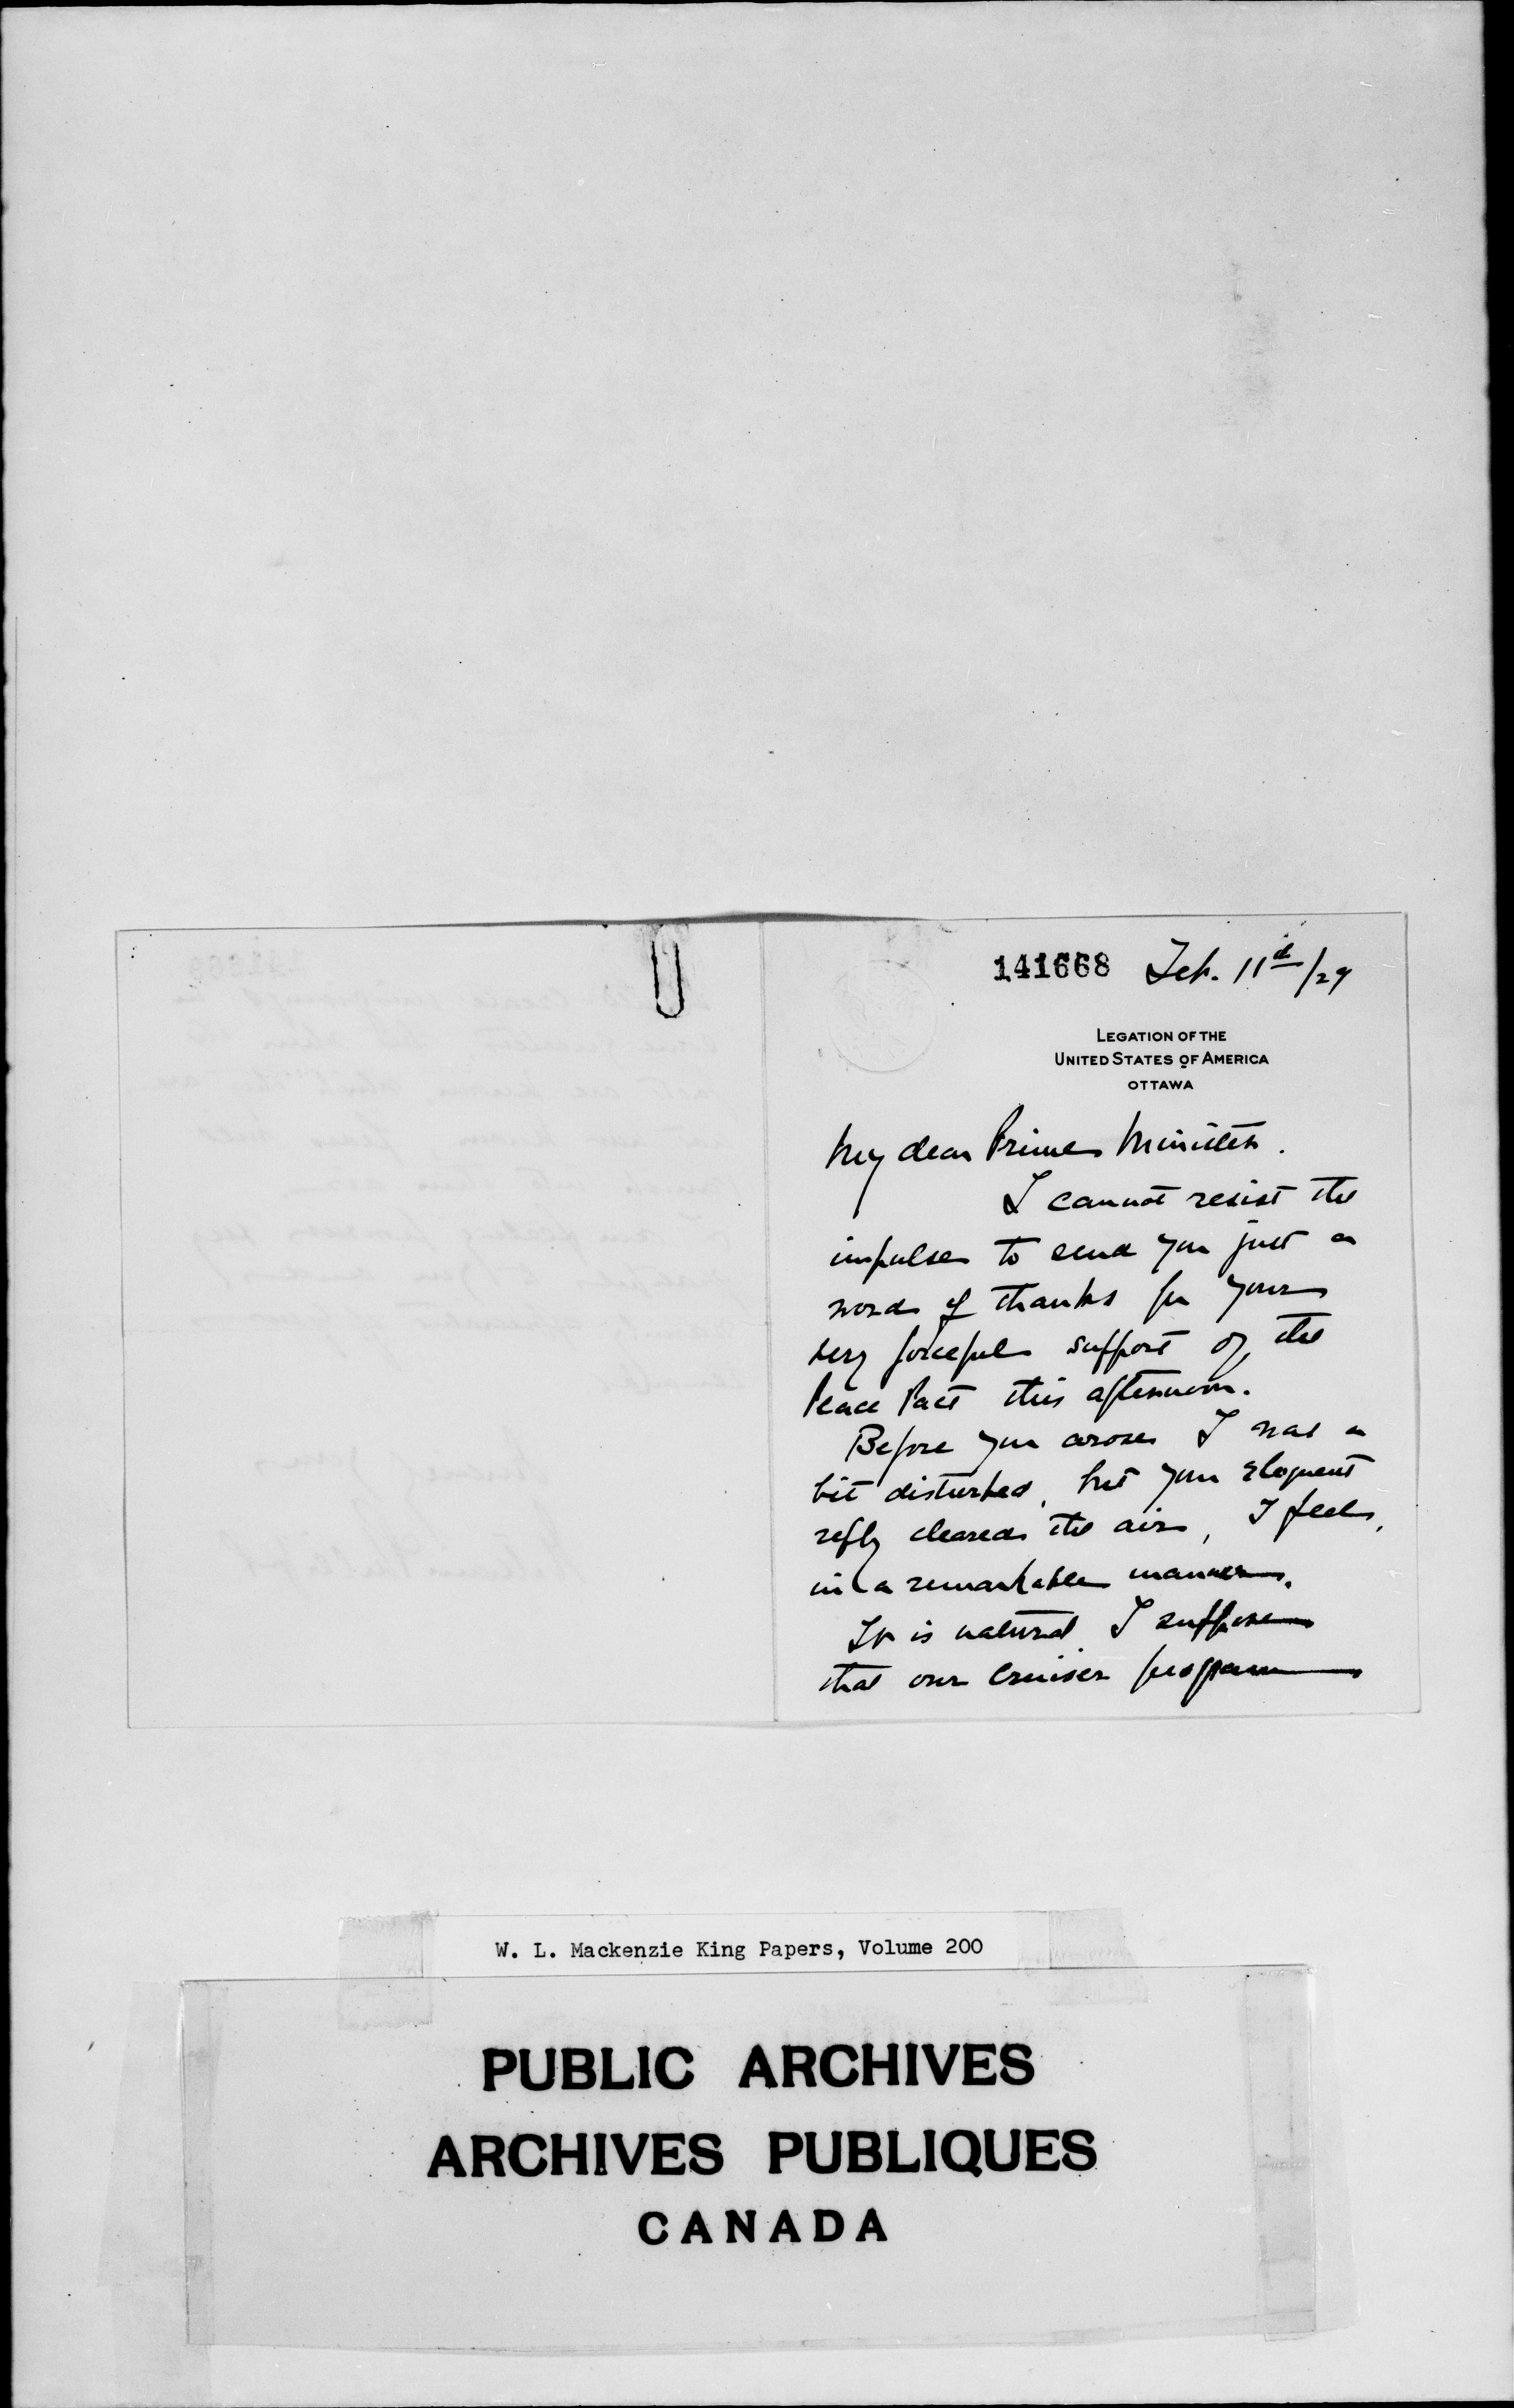 141668 Feb. 11th/29
LEGATION OF THE
UNITED STATES OF AMERICA
OTTAWA
My dear Prime Minister.
I cannot resist the
impulse to send you just a
word of thanks for your
very forceful support of the
Peace Pact this afternoon.
Before you arose I was a
bit disturbed, but your eloquent
reply cleared the air, I feel,
in a remarkable manner.
It is natural I suppose
that our cruiser program
W. L. Mackenzie King Papers, Volume 200
PUBLIC ARCHIVES
ARCHIVES PUBLIQUES
CANADA